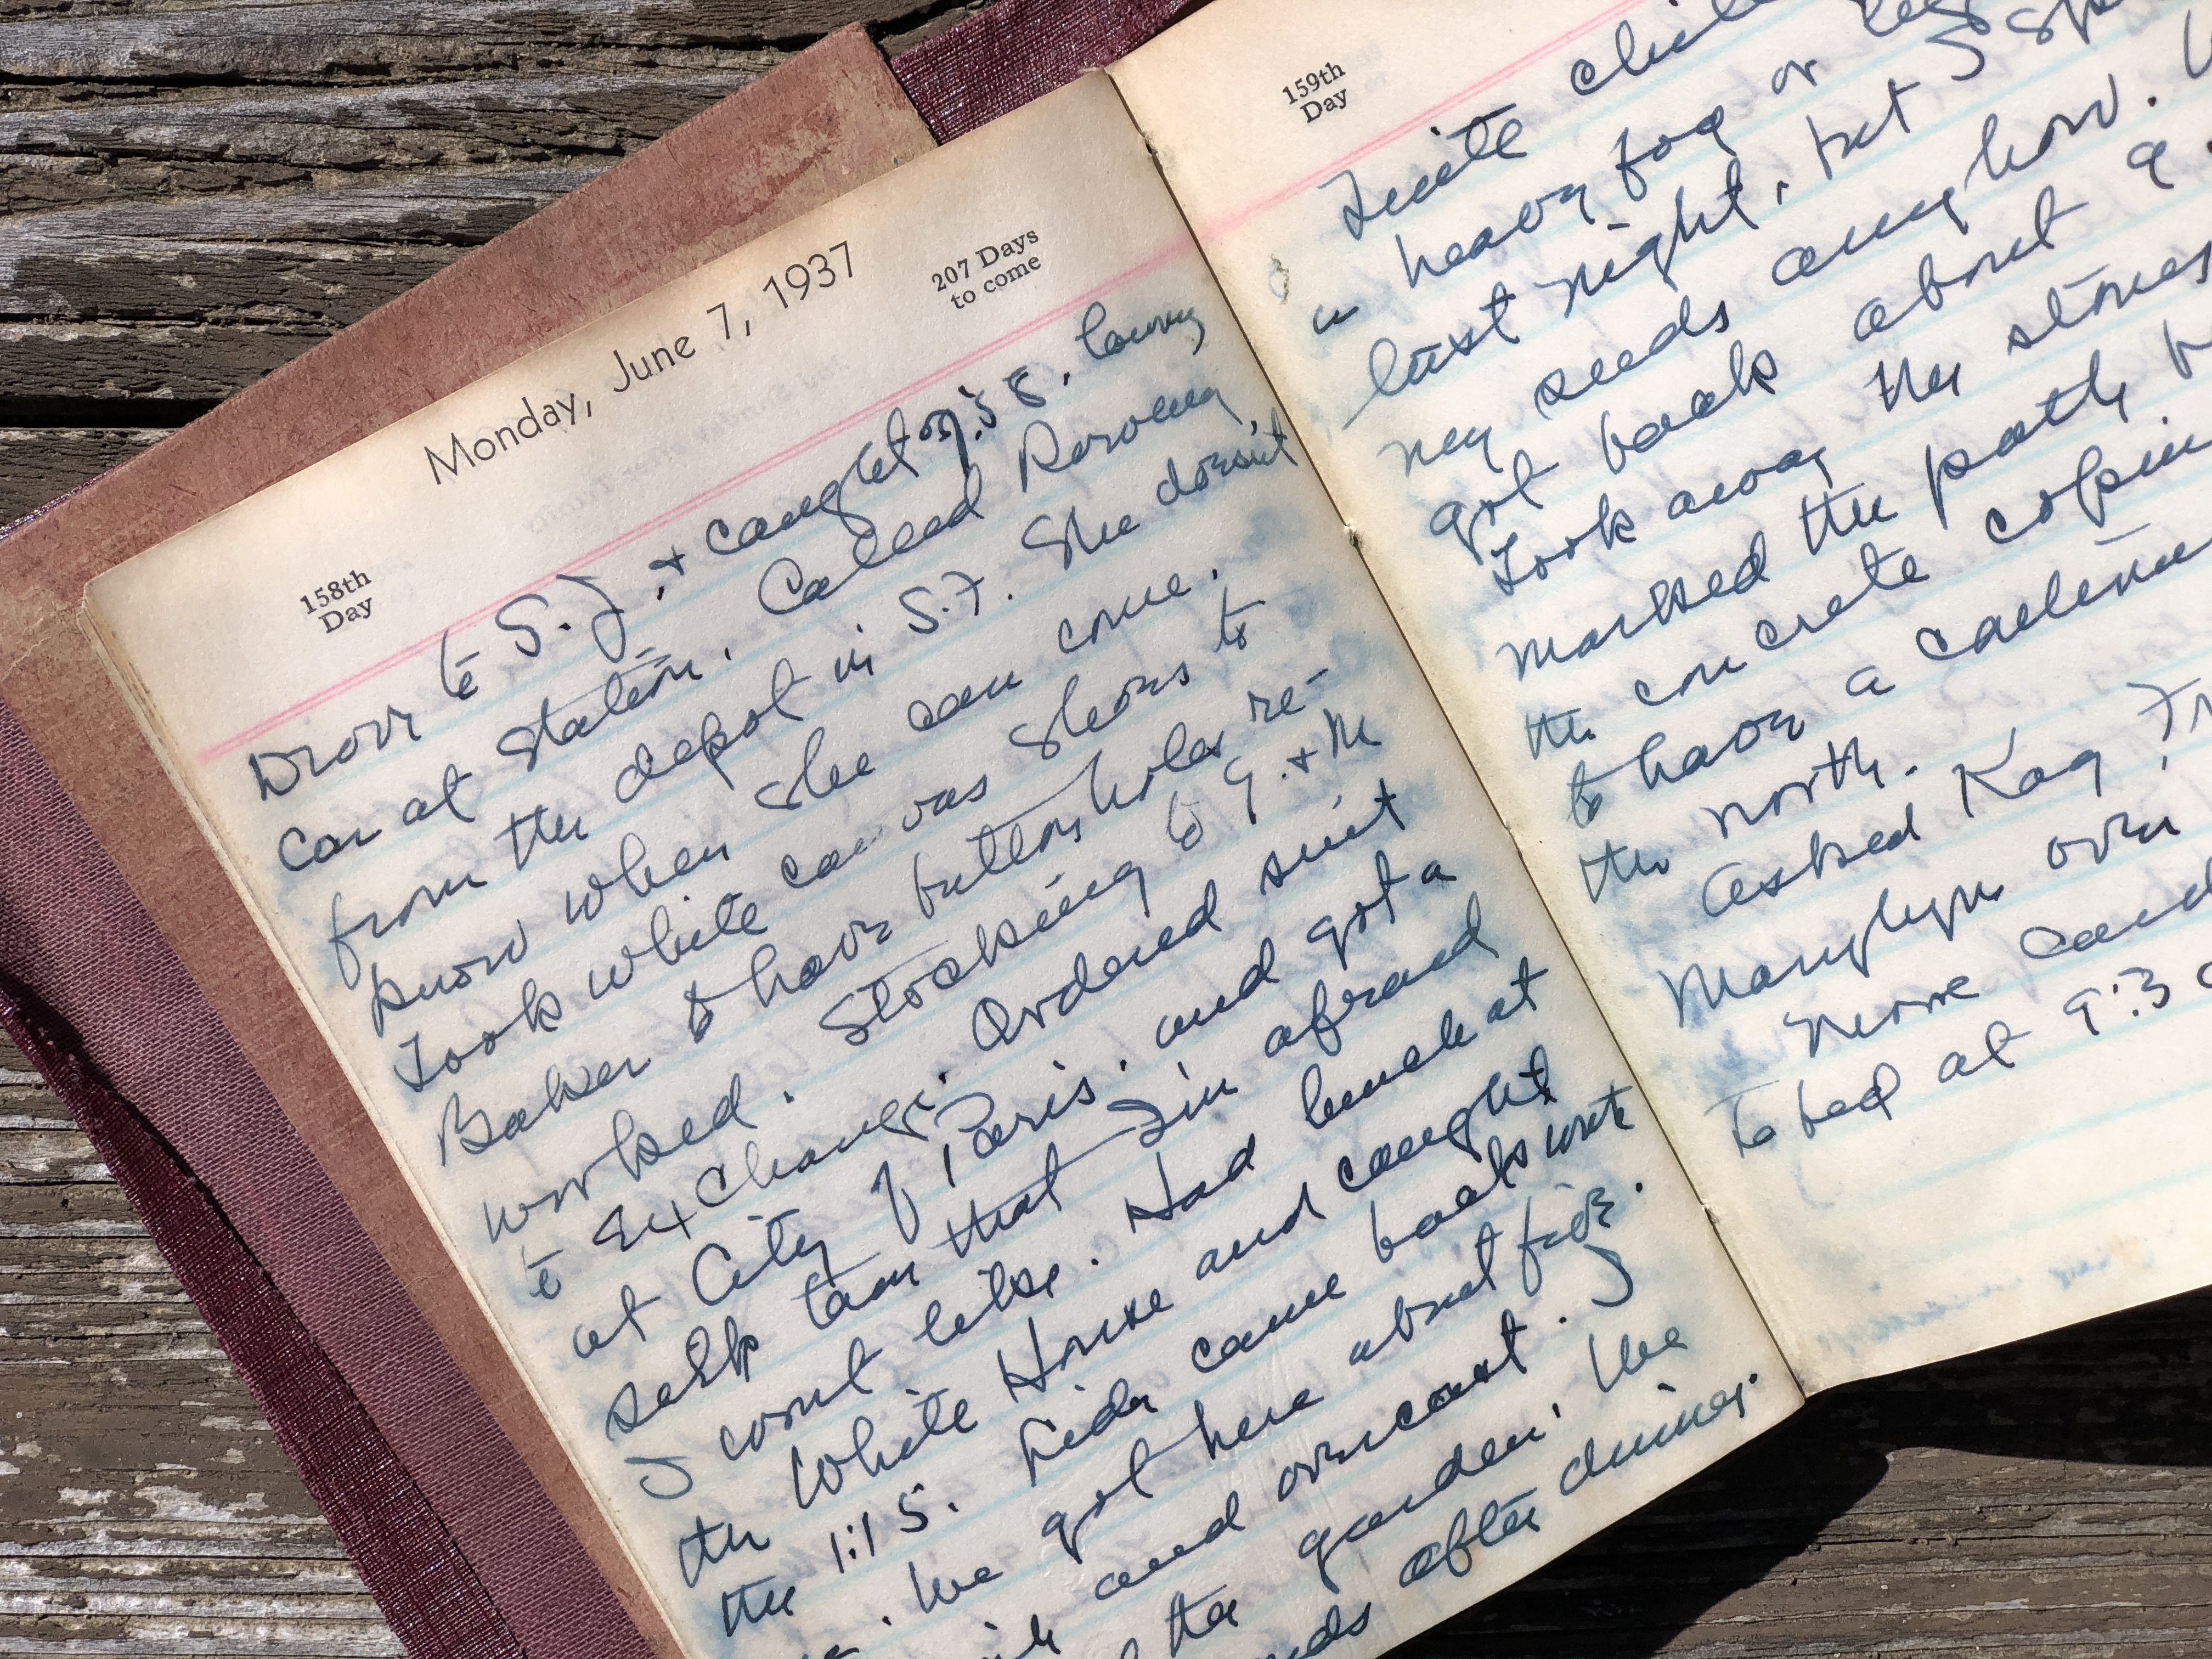 Monday, June 7, 1937
158th
Day
207 Days
to come
Drove to S.J. & caught 7:58. leaving
car at station. Called
from the depot in S.F. She doesn't
know when she can come.
Took white can vas shoes to
Baker & have buttonholes re-
worked. Stocking to G. & M
to Exchange. Ordered suit
at City of Paris. and got a
silk tan that I'm afraid
I wont like. Had lunch at
the White House and caught
the 1:15. Lida came back with
me. We got here about five.
and overcast. I
the garden. We
after dinner.
159th
Day
Quite
a heavy fog or
last night, but I
my seeds anyhow.
got back about 9
Took away the stones
marked the path
the concrete
to have a
the north.
Asked Kay
Marylyn over
to bed at 9:3